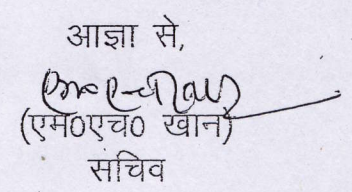 आज्ञा से,
(एम0एच0 खान)
सचिव